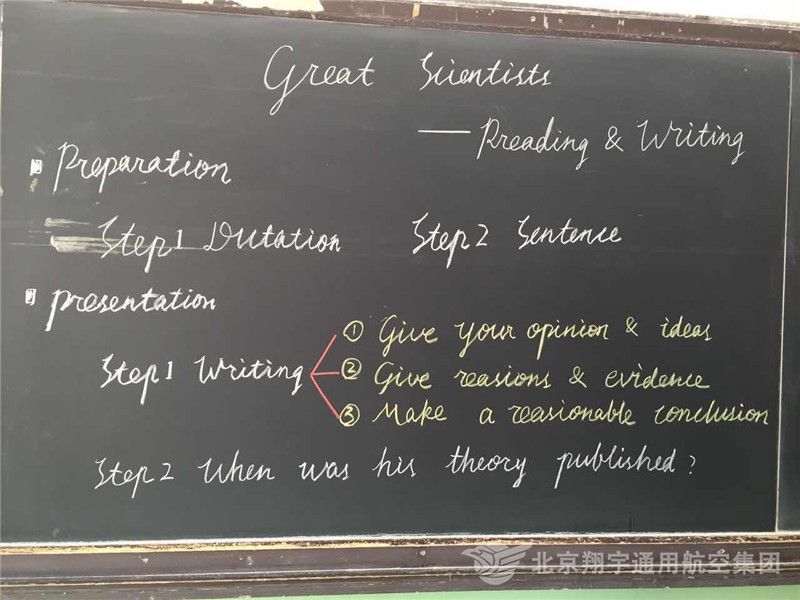 Great Scientists
— Rreading & Writing
Preparation
Step1 Dictation Step2 Sentence
presentation
① Give your opinion & ideas
Step1 Writing ② Give reasions & evidence
③ Make a reasionable conclusion
Step2 When was his theory published?
北京翔宇通用航空集团